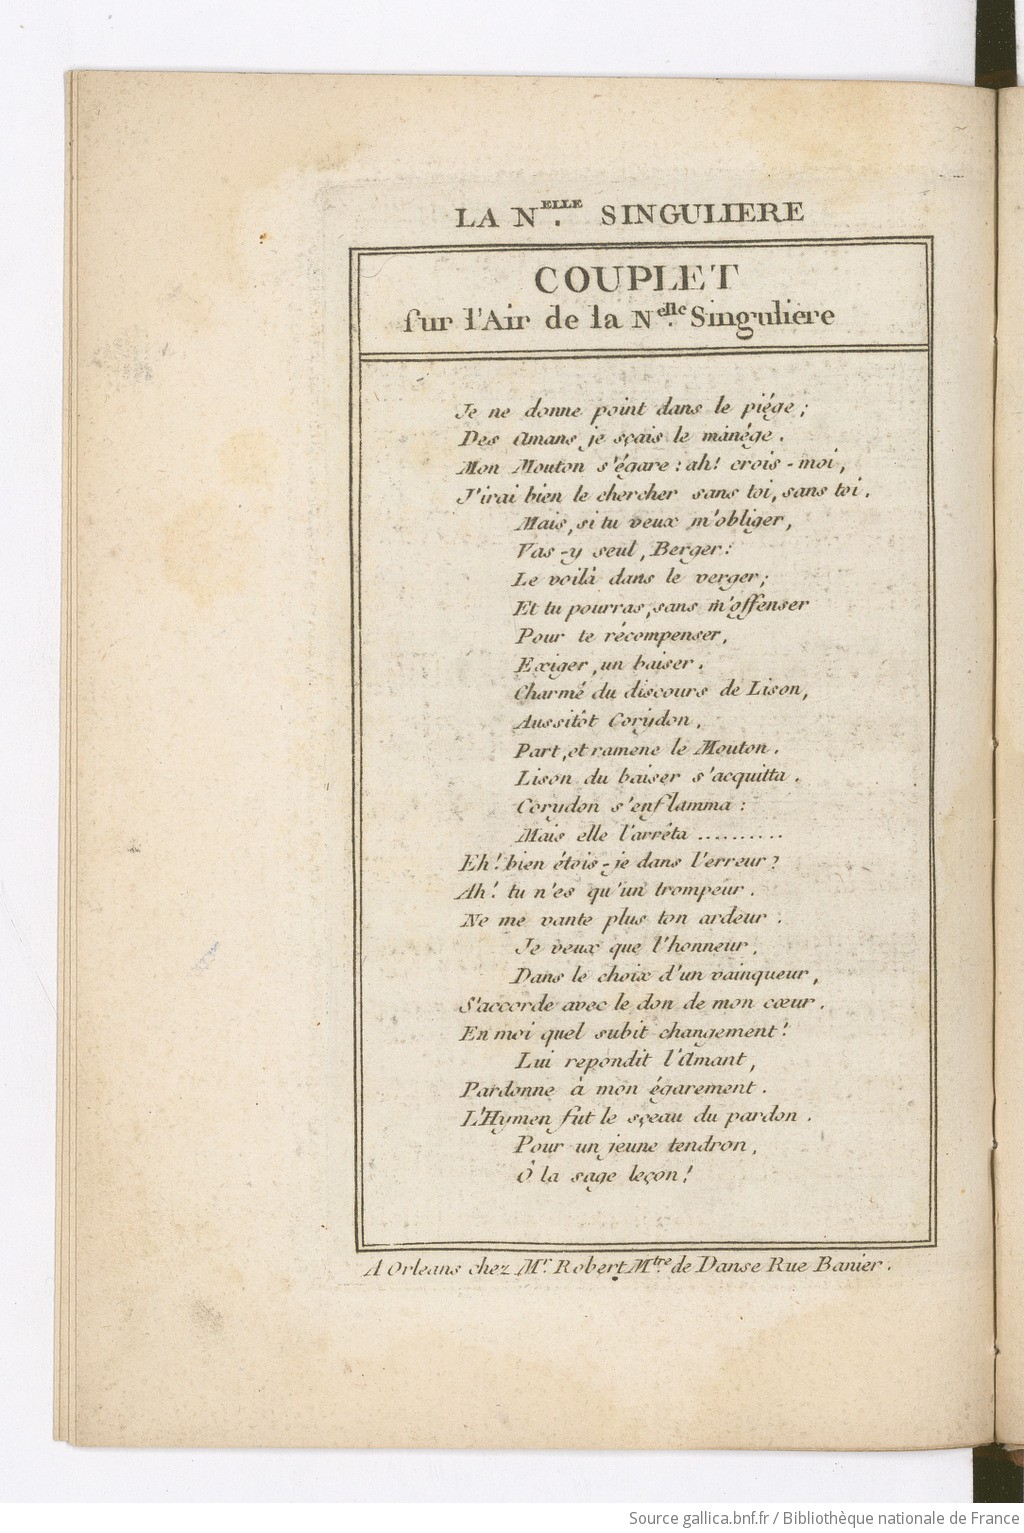 LA N.ELLE SINGULIERE
COUPLET
sur l'Air de la N.elle Singulière
Je ne donne point dans le piége;
Des Amans je sçais le manége.
Mon Mouton s'égare: ah! crois-moi,
J'irai bien le chercher sans toi, sans toi.
Mais, si tu veux m'obliger,
Vas-y seul, Berger:
Le voilà dans le verger;
Et tu pourras, sans m'offenser
Pour te récompenser,
Exiger, un baiser.
Charmé du discours de Lison,
Aussitôt Corydon,
Part, et ramene le Mouton.
Lison du baiser s'acquitta.
Corydon s'enflamma:
Mais elle l'arrêta ..........
Eh! bien étois-je dans l'erreur?
Ah! tu n'es qu'un trompeur.
Ne me vante plus ton ardeur.
Je veux que l'honneur,
Dans le choix d'un vainqueur,
S'accorde avec le don de mon cœur.
En moi quel subit changement!
Lui repondit l'Amant,
Pardonne à mon égarement.
L'Hymen fut le sçeau du pardon.
Pour un jeune tendron,
Ô la sage leçon!
A Orleans chez Mr. Robert Mtre. de Danse Rue Banier.
Source gallica.bnf.fr / Bibliothèque nationale de France